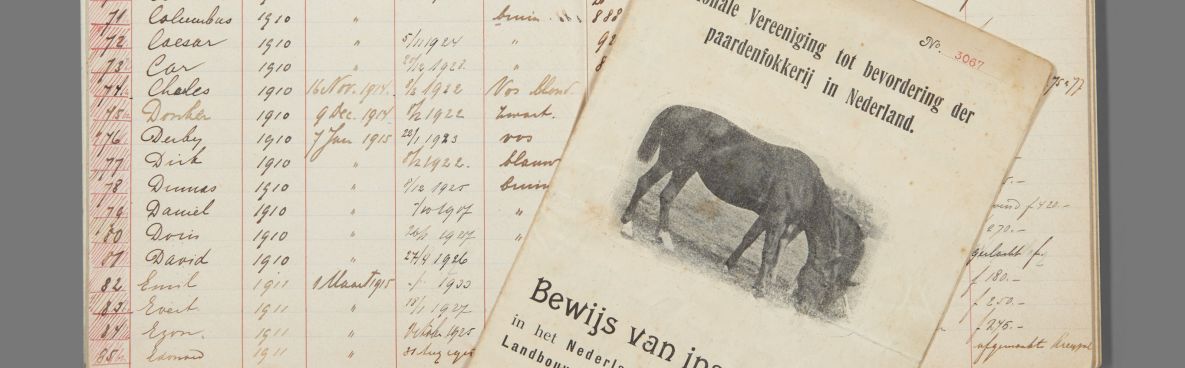 71 Columbus 1910 " bruin 888
72 Caesar 1910 " 5/11 1924 "
73 Car 1910 " "
74 Charles 1910 16 Nov. 1914. 1922 Vos blond
75 Donker 1910 9 Dec. 1914. 1922 zwart.
76 Derby 1910 7 Jan 1915 1923 vos
77 Dirk 1910 " 1922. blauw
78 Dumas 1910 " 1925 bruin
79 Daniel 1910 " 1927 "
80 Doris 1910 " 1927 "
81 David 1910 " 1926
82 Emil 1911 1 Maart 1915
83 Evert 1911 " 1927
84 Egon. 1911 "
85 Edmond 1911 "
ionale Vereeniging tot bevordering der
paardenfokkerij in Nederland.
No. 3067
Bewijs van ins
in het Nederla
Landbou
75 77
f 420.-
270.-
geslacht
f 180.-
f 250.-
f 275.-
afgemaakt